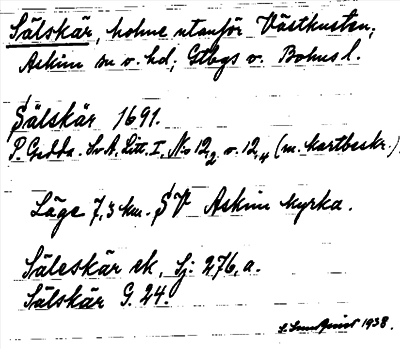 Sälskär, holme utanför Västkusten;
Askim sn o. hd; Gtbgs o. Bohusl.
Sälskär 1691.
P. Gedda. Sv. A. Litt. I. No 12,2 o. 12,4 (m. kartbeskr.)
Läge 7,3 km. SV Askim kyrka.
Säleskär ek, Sj. 276, a.
Sälskär G. 24.
1938.